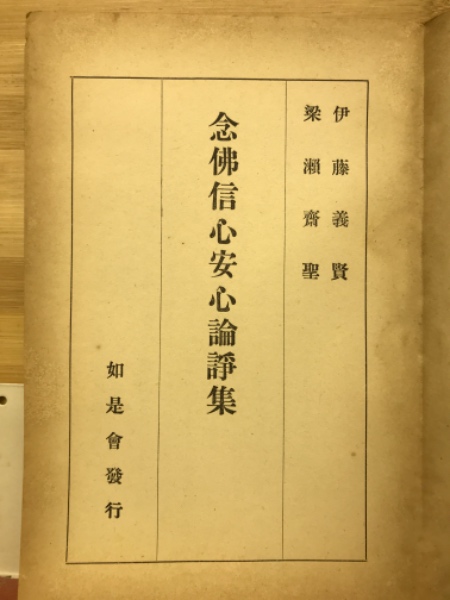 伊藤義賢
梁瀨齋聖
念佛信心安心論諍集
如是會發行